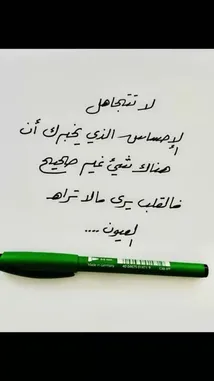 لا تتجاهل
لإحساس الذي يخبرك أن
هناك شيئ غير صحيح
فالقلب يرى مالا تراه
العيون ....